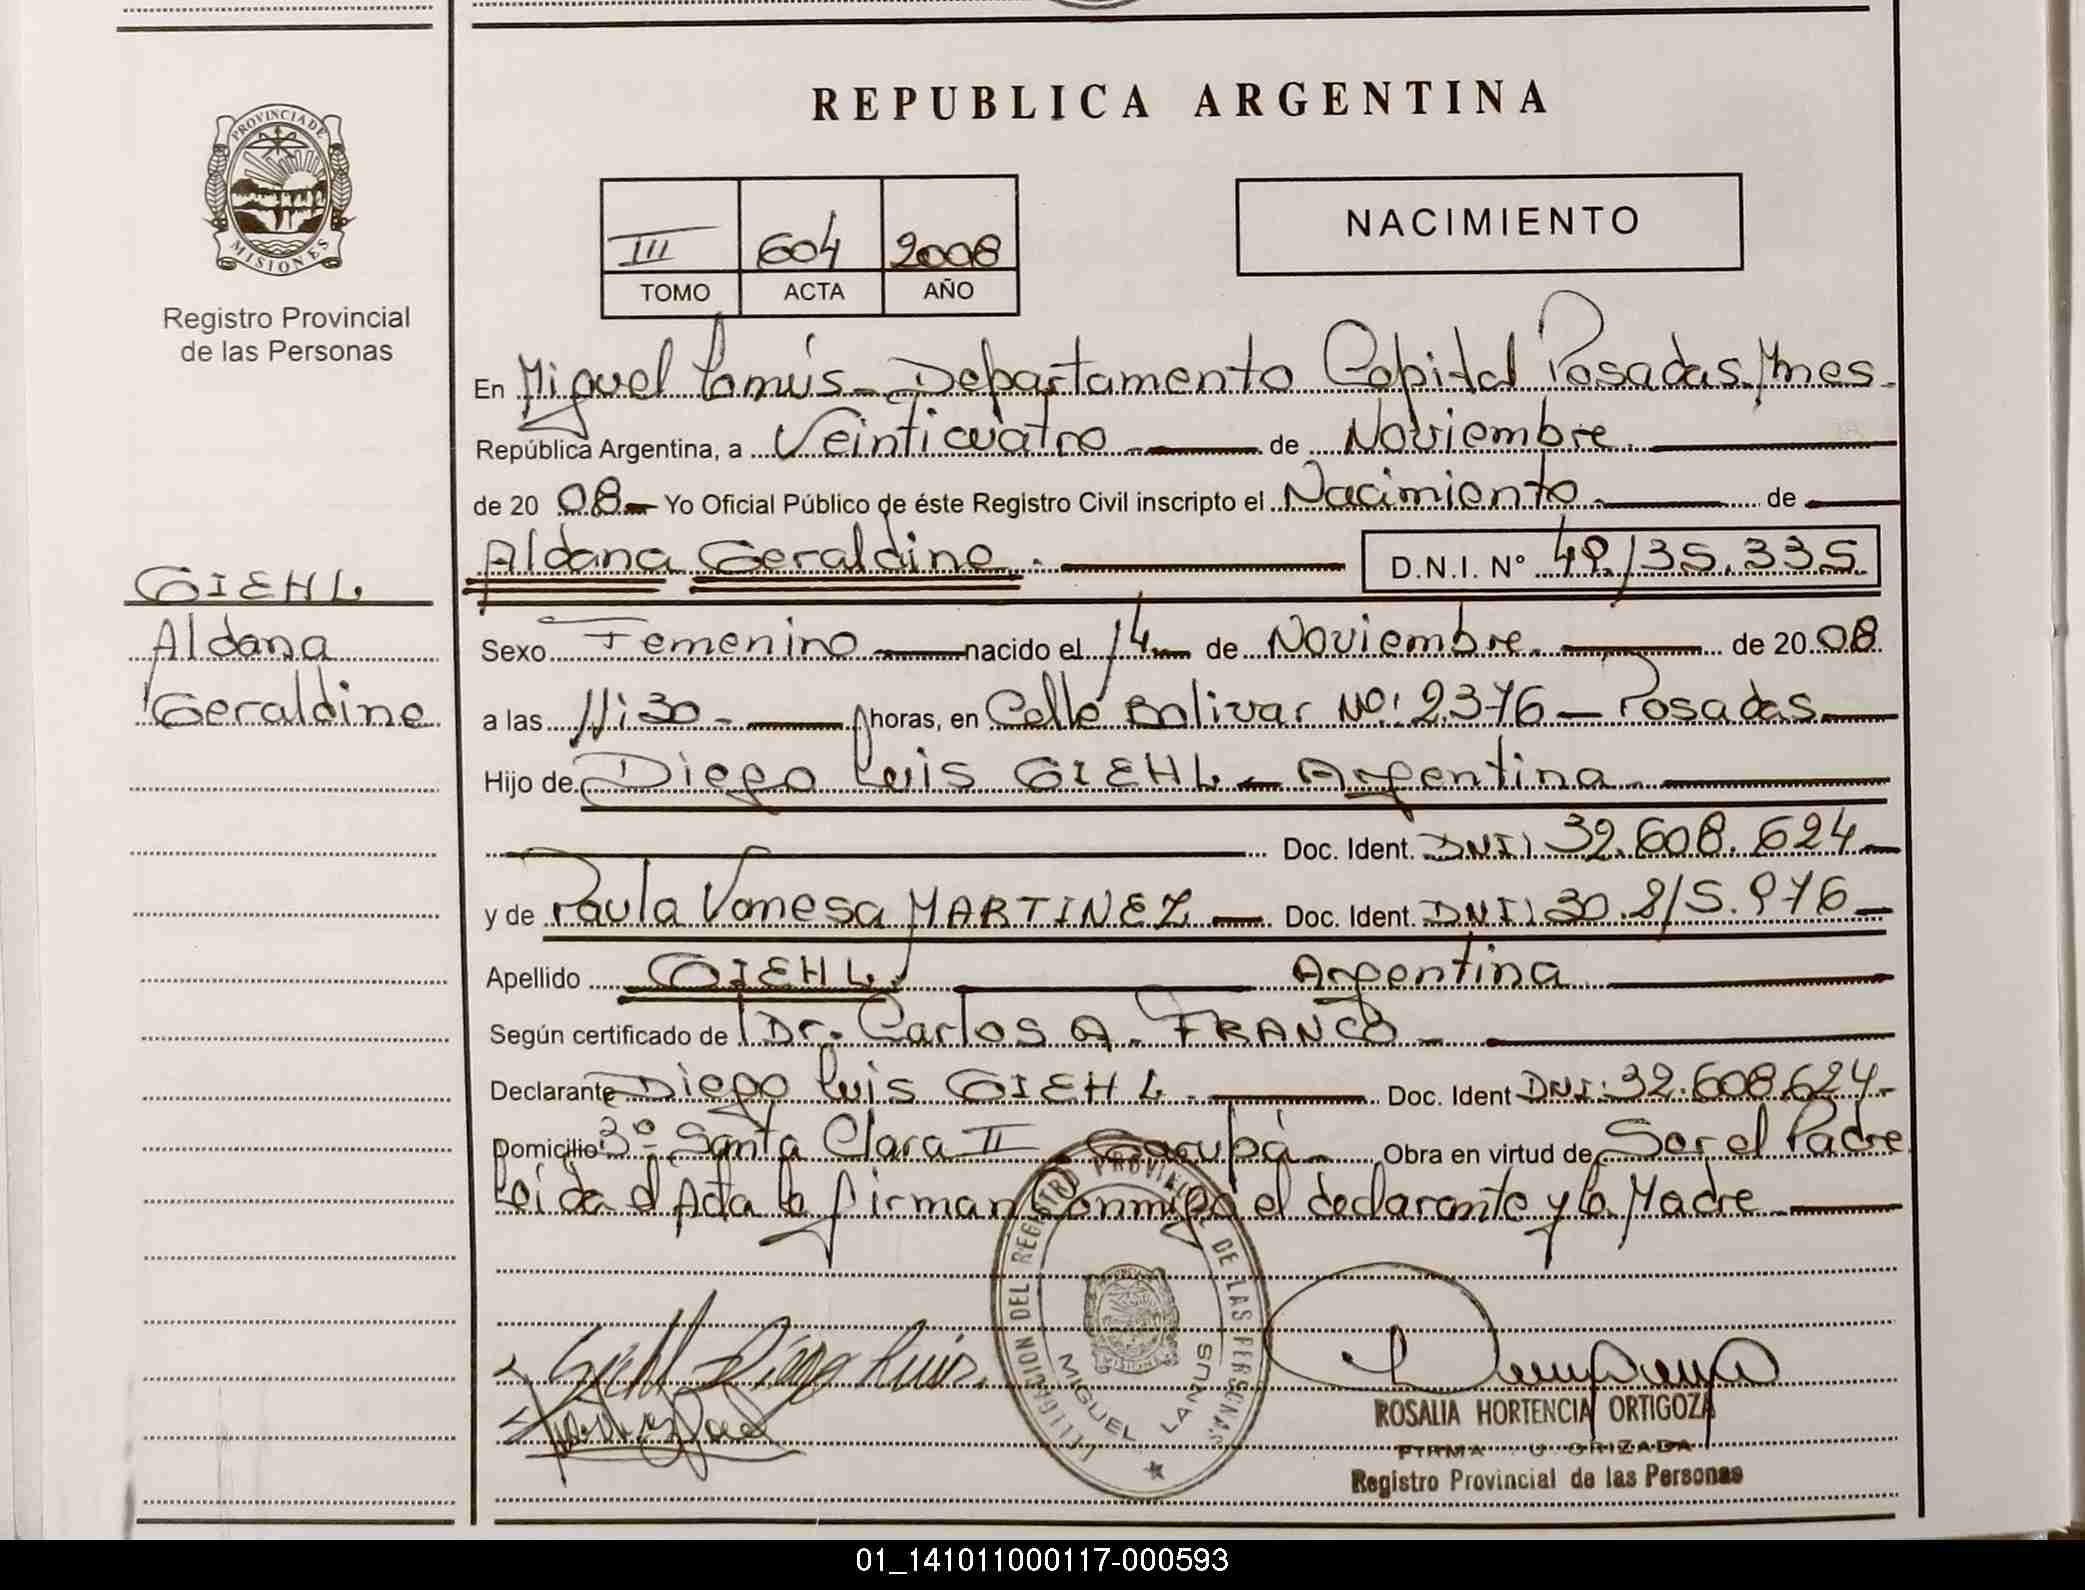 PROVINCIA DE
MISIONES
Registro Provincial
de las Personas
GIEHL
Aldana
Geraldine
REPUBLICA ARGENTINA
III 604 2008
TOMO ACTA AÑO
NACIMIENTO
En Miguel Lanús - Departamento Capital Posadas. Mnes.
República Argentina, a Veinticuatro de Noviembre
de 20 08 Yo Oficial Público de éste Registro Civil inscripto el Nacimiento de
Aldana Geraldine. D.N.I. N° 49.135.335
Sexo Femenino nacido el 14 de Noviembre de 20 08
a las 11:30 horas, en Calle Bolivar Nº: 2376 - Posadas
Hijo de Diego Luis GIEHL - Argentina
Doc. Ident. DNI) 32.608.624
y de Paula Vanesa MARTINEZ Doc. Ident. DNI) 30.815.976
Apellido GIEHL. Argentina
Según certificado de Dr. Carlos A. FRANCO
Declarante Diego Luis GIEHL. Doc. Ident DNI: 32.608.624
Domicilio 3º Santa Clara II - Garupá Obra en virtud de Ser el Padre
Leida el Acta la firman Conmigo el declarante y la Madre
Giehl Diego Luis
DEL REGISTRO PROVINCIAL DE LAS PERSONAS
MIGUEL LANUS
ROSALIA HORTENCIA ORTIGOZA
FIRMA
Registro Provincial de las Personas
01_141011000117-000593